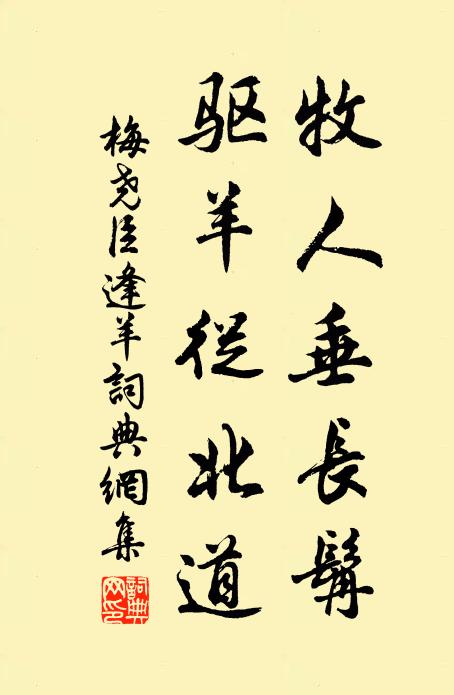 牧人垂長髯
驱羊從北道
梅尧臣逢羊詞典網集
詞典网印